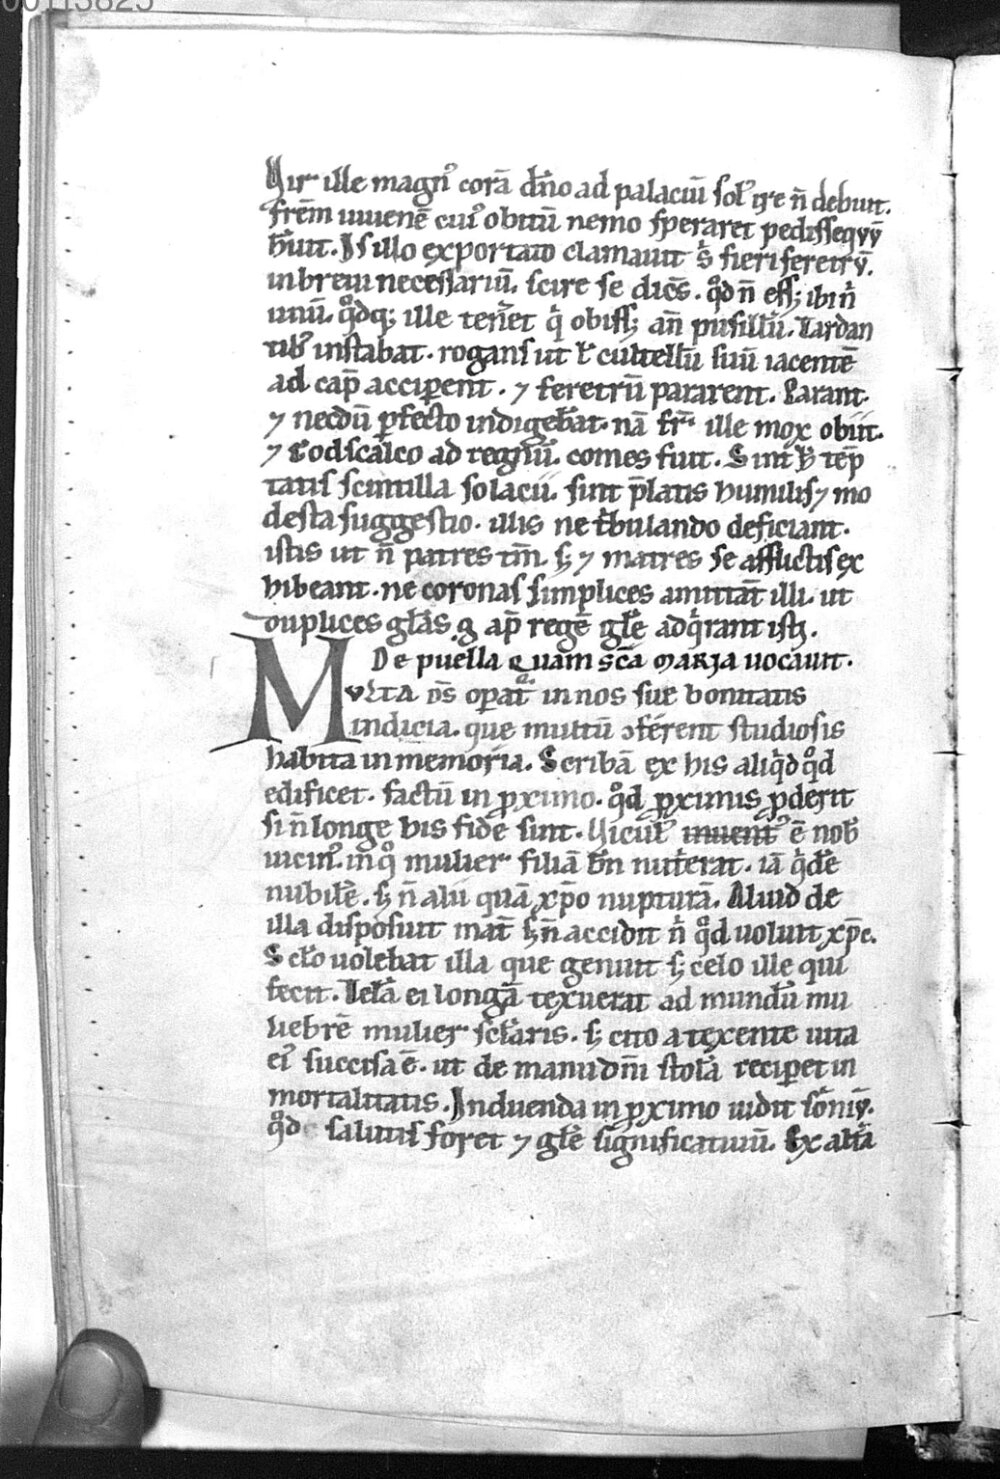 00113825
Vir ille magn᷒ corā dn̄o ad palaciū sol᷒ ire n̄ debuit.
frēm iuuenē cui᷒ obitū nemo speraret pedisseqvv̄
h̄uit. Is illo exportato clamauit s᷑ fieri feretrv̄.
inbreui necessariū. scire se dicēs. qͦd n̄ eēt; ibi n͛
unū. qͦdq; ille tener͛et q͛ obiss; an̄ pusillū. Tardan
tib᷒ instabat. rogans ut ł cultellū suū iacentē
ad cap̄ acciꝑent. ⁊ feretrū pararent. Parant.
⁊ necdū ꝑfecto indigebāt. nā fr̄ ille mox obiit.
⁊ Godscalco ad regnū. comes fuit. Sint ħ tēp
tatis scintilla solacii. sint p̄latis humilis ⁊ mo
desta suggestio. illis ne t͛bulando deficiant.
istis ut n̄ patres tm̄. s; ⁊ matres se afflictis ex
hibeant. ne coronas simplices amittāt illi. ut
duplices gl̄as. g͛ ap̄ regē gl̄e adq͛rant isti.
De puella quam sc̄a maria uocauit.
Mvlta ds̄ oꝑatͬ in nos sue bonitatis
indicia. que multū ↄferent studiosis
habita in memoria. Scribā ex his aliq͛d qͦd
edificet. factū in ꝓximo. qͦd ꝓximis ꝓderit
si n̄ longe his fide sint. Uicul᷒ inuent᷒ ē nob̄
uicin᷒. in qͦ mulier filiā bn̄ nut͛erat. iā q͛dē
nubilē. s; n̄ alii quā xp̄o nupturā. Aliud de
illa disposuit mat̄ s; n̄ accidit n͛ qͦd uoluit xp̄c.
Sclo uolebat illa que genuit s; celo ille qui
fecit. Telā ei longā texuerat ad mundū mu
liebrē mulier sclaris. s; cito a texente uita
ei᷒ succisa ē. ut de manu dn̄i stolā reciꝑet in
mortalitatis. Induenda in ꝓximo uidit sōniv̄.
qͦd salutis foret ⁊ gl̄e significatiuū. Ex alta